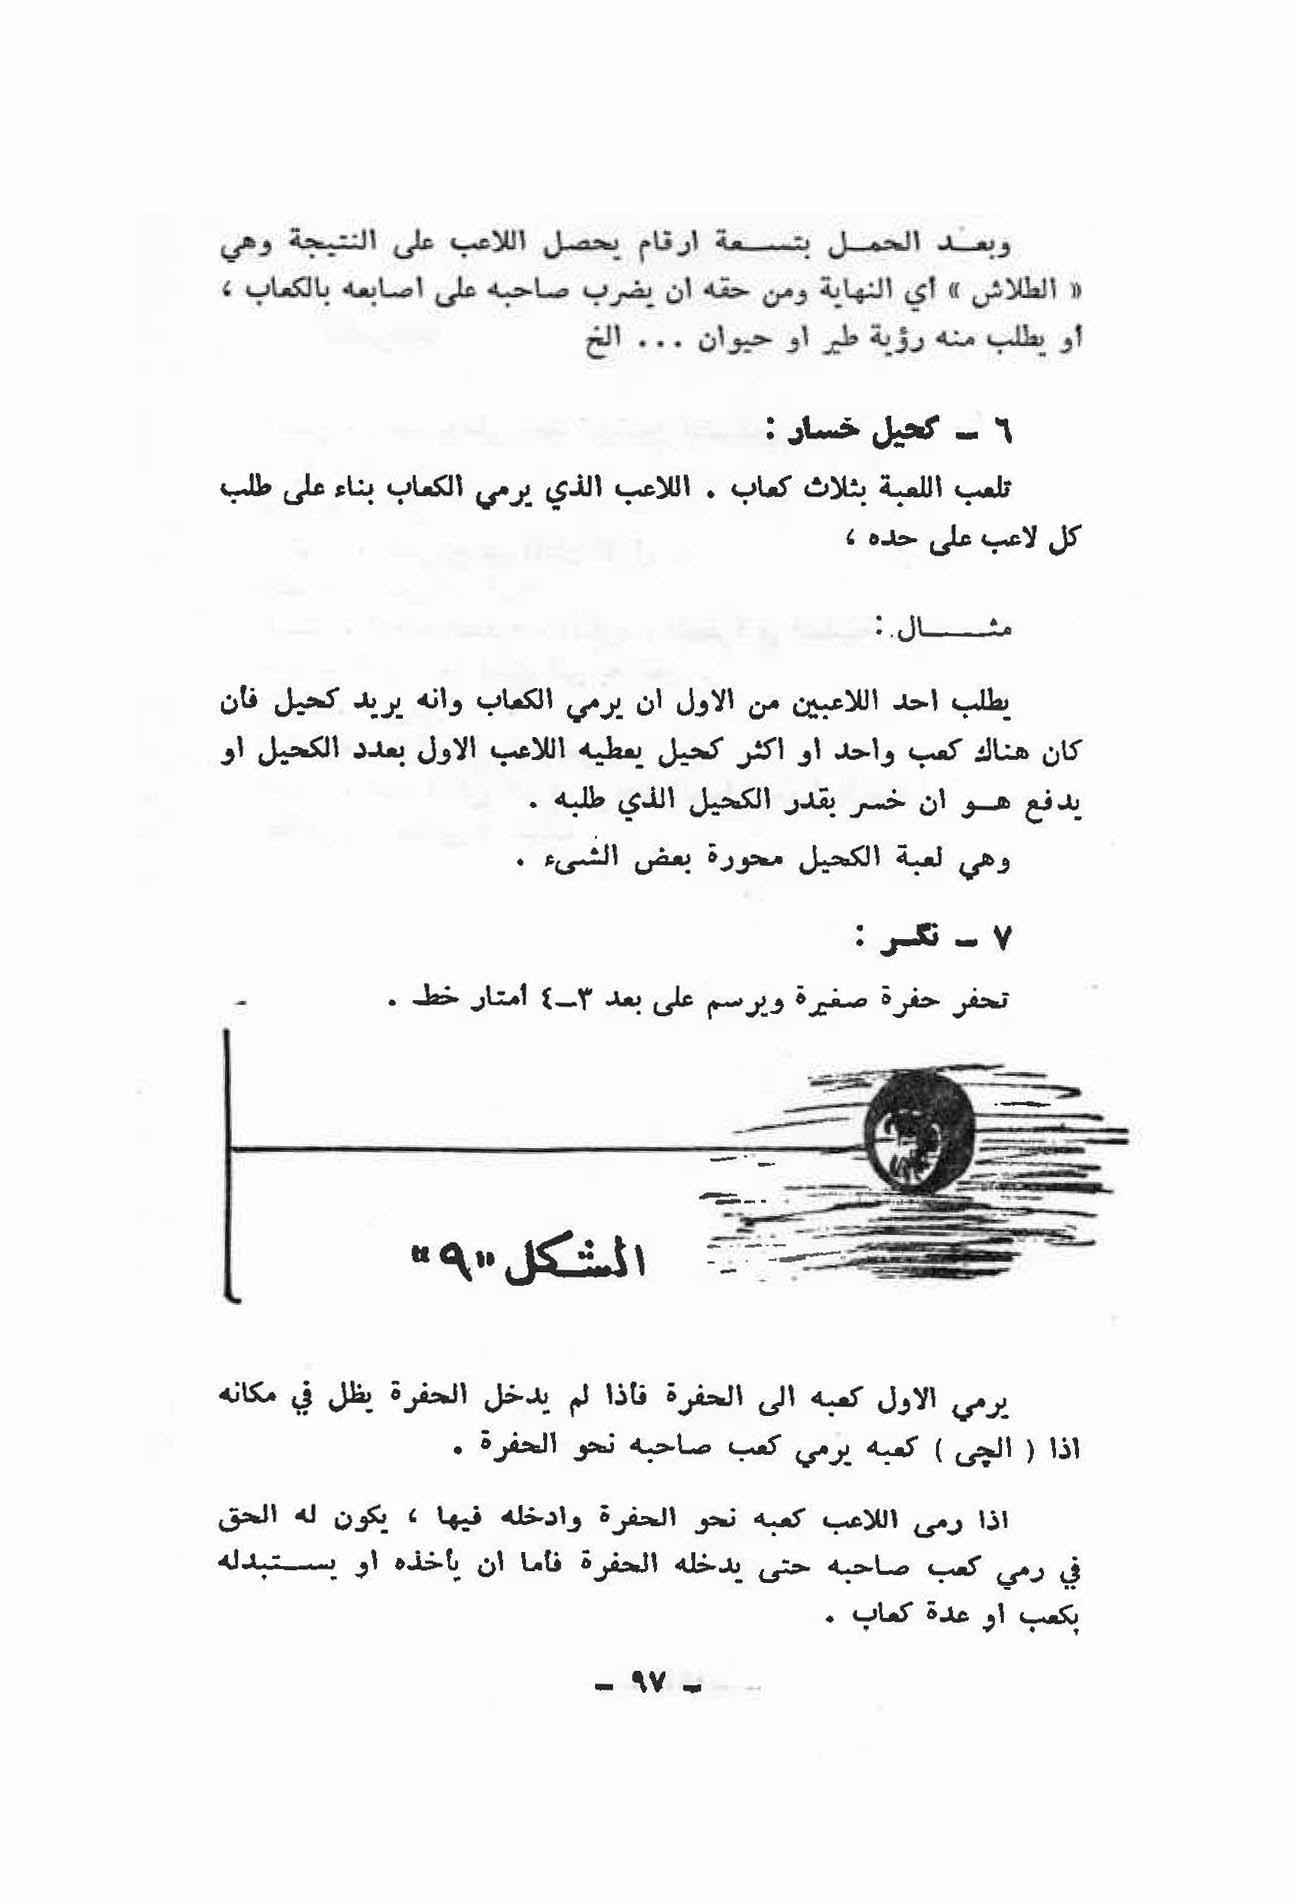 وبعد الحمل بتسعة ارقام يحصل اللاعب على النتيجة وهي
« الطلاش » أي النهاية ومن حقه ان يضرب صاحبه على اصابعه بالكعاب ،
أو يطلب منه رؤية طير او حيوان ... الخ
٦ – كحيل خسار :
تلعب اللعبة بثلاث كعاب . اللاعب الذي يرمي الكعاب بناء على طلب
كل لاعب على حده ،
مثال :
يطلب احد اللاعبين من الاول ان يرمي الكعاب وانه يريد كحيل فأن
كان هناك كعب واحد او اكثر كحيل يعطيه اللاعب الاول بعدد الكحيل او
يدفع هو ان خسر بقدر الكحيل الذي طلبه .
وهي لعبة الكحيل محورة بعض الشىء .
٧ – نگر :
تحفر حفرة صغيرة ويرسم على بعد ٣–٤ أمتار خط .
الشكل "٩"
يرمي الاول كعبه الى الحفرة فأذا لم يدخل الحفرة يظل في مكانه
اذا ( الچى ) كعبه يرمي كعب صاحبه نحو الحفرة .
اذا رمى اللاعب كعبه نحو الحفرة وادخله فيها ، يكون له الحق
في رمي كعب صاحبه حتى يدخله الحفرة فأما ان يأخذه او يستبدله
بكعب او عدة كعاب .
– ٩٧ –